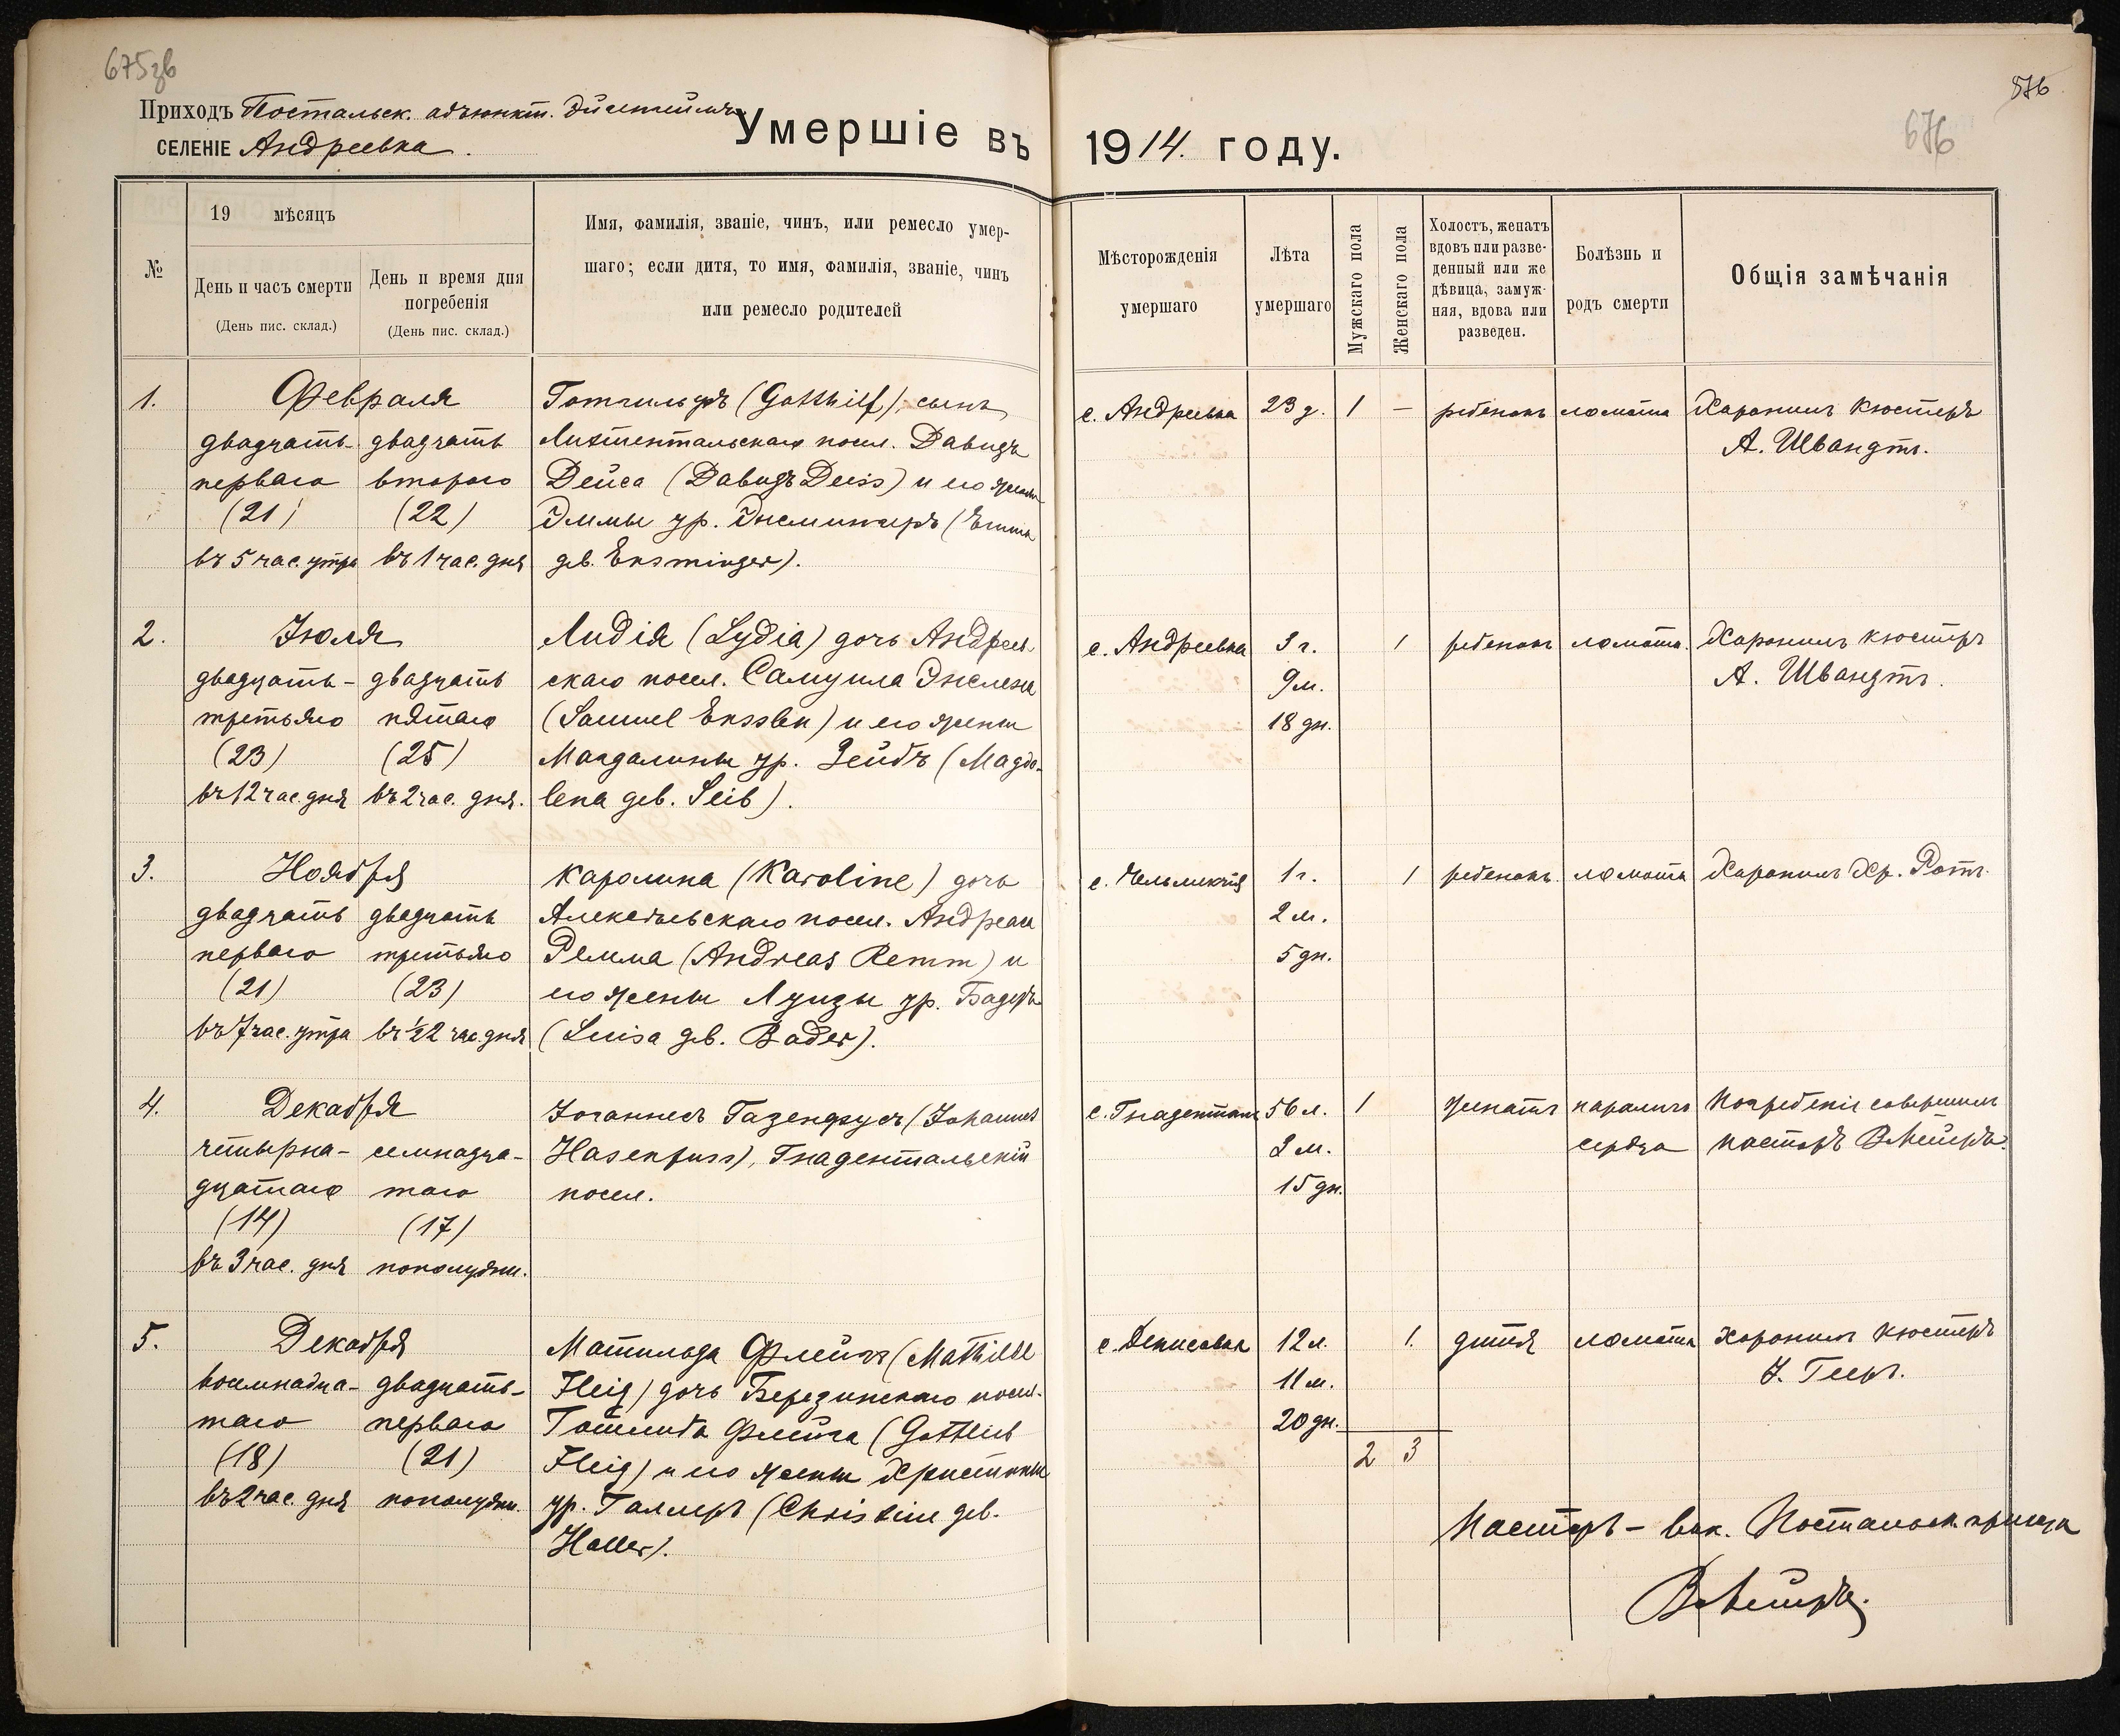 675зв
Приходъ Постальск. адъюнкт. Эйгенгеймъ
СЕЛЕНІЕ Андреевка.
Умершіе въ 1914. году.
576
676
№
19 мѣсяцъ
День и часъ смерти
(День пис. склад.)
День и время дня
погребенія
(День пис. склад.)
Имя, фамилія, званіе, чинъ, или ремесло умер-
шаго; если дитя, то имя, фамилія, званіе, чинъ
или ремесло родителей
Мѣсторожденія
умершаго
Лѣта
умершаго
Мужскаго пола
Женскаго пола
Холостъ, женатъ
вдовъ или разве-
денный или же
дѣвица, замуж-
няя, вдова или
разведен.
Болѣзнь и
родъ смерти
Общія замѣчанія
1.
Февраля
двадцать-
перваго
(21)
въ 5 час. утра
двадцать
второго
(22)
въ 1 час. дня
Готгильфъ (Gotthilf), сынъ
Лихтентальскаго посел. Давида
Дейса (Давидъ Deiss) и его жены
Эммы ур. Энсмингеръ (Emma
geb. Ensminger).
с. Андреевка
23 д.
1
—
ребенокъ
ломота
Хоронилъ кюстеръ
А. Швандтъ.
2.
Іюля
двадцать-
третьяго
(23)
въ 12 час. дня
двадцать
пятаго
(25)
въ 2 час. дня.
Лидія (Lydia) дочь Андреев-
скаго посел. Самуила Энслена
(Samuel Ensslen) и его жены
Магдалины ур. Зейбъ (Magda-
lena geb. Seib).
с. Андреевка
3 г.
9 м.
18 дн.
1
ребенокъ
ломота.
Хоронилъ кюстеръ
А. Швандтъ.
3.
Ноября
двадцать
перваго
(21)
въ 7 час. утра
двадцать
третьяго
(23)
въ ½2 час. дня
Каролина (Karoline) дочь
посел. Андреаса
Ремма (Andreas Remm) и
его жены Луизы ур. Бадеръ
(Luisa geb. Bader).
с. Чельмекчія
1 г.
2 м.
5 дн.
1
ребенокъ.
ломота
Хоронилъ Хр. Ротъ.
4.
Декабря
четырна-
дцатаго
(14)
въ 3 час. дня
семнадца-
таго
(17)
пополудни.
Іоганнесъ Газенфусъ (Johannes
Hasenfuss), Гнадентальскій
посел.
с. Гнаденталь
56 л.
2 м.
15 дн.
1
женатъ
параличъ
сердца
Погребеніе совершилъ
пасторъ В. Мейеръ.
5.
Декабря
восемнадца-
таго
(18)
въ 2 час. дня
двадцать-
перваго
(21)
пополудни.
Матильда Флейгъ (Mathilde
Fleig) дочь Березинскаго посел.
Готлиба Флейга (Gottlieb
Fleig) и его жены Христины
ур. Галлеръ (Christine geb.
Haller).
с. Денисовка
12 л.
11 м.
20 дн.
1.
дитя
ломота
Хоронилъ кюстеръ
2 3
Пасторъ - вик. Постальск. прихода
В. Мейеръ.